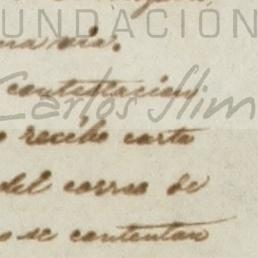 FUNDACIÓN
una via.
Carlos Slim
contestacion
recibo carta
del correo de
se contentan